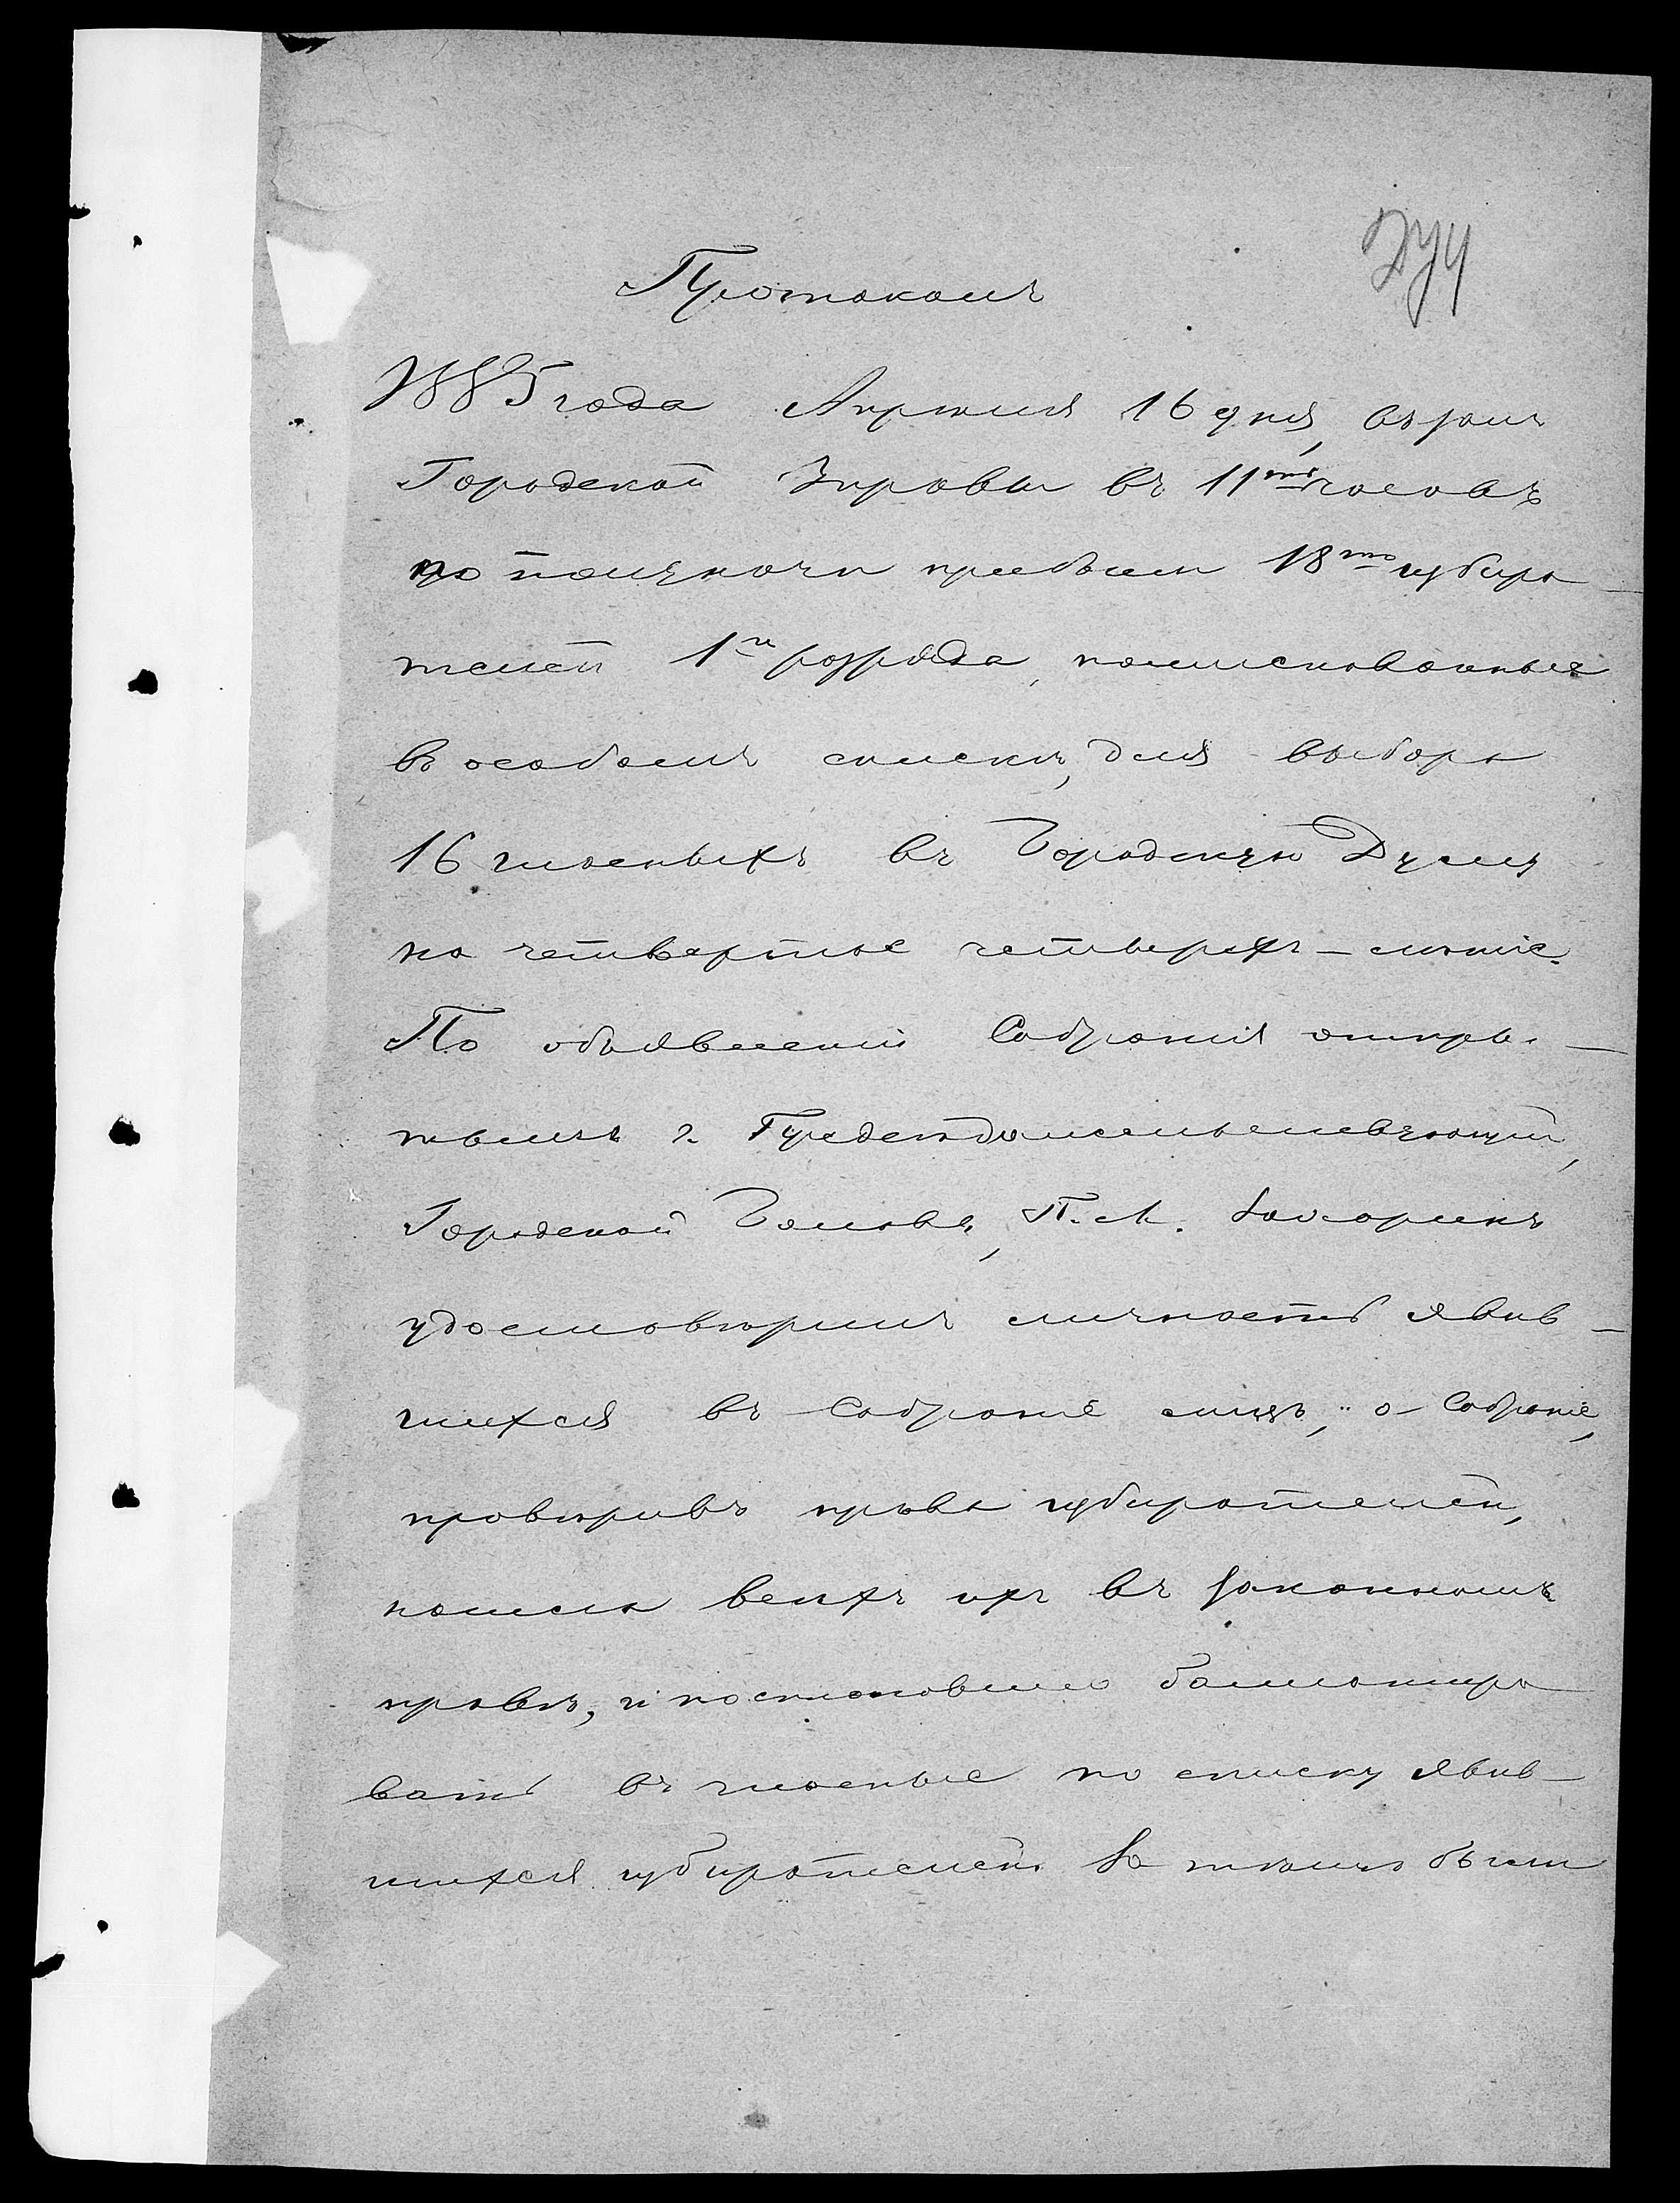 Протоколъ
1885 года Апрѣля 16 дня, въ залѣ
Городской Управы въ 11ть часовъ
по полуночи прибыли 18ть избира-
телей 1го разряда, поименованныхъ
въ особомъ спискѣ, для выбора
16 гласныхъ въ Городскую Думу
на четвертое четырехъ-лѣтіе.
По объявленіи Собранія откры-
тымъ г. Предсѣдательствующій,
Городской Голова, П. М.
удостовѣрилъ личность явив-
шихся въ Собраніе лицъ, а Собраніе,
провѣривъ права избирателей,
нашла всѣхъ ихъ въ законномъ
правѣ, и постановило баллотиро
вать въ гласные по списку явив-
шихся избирателей. За тѣмъ были